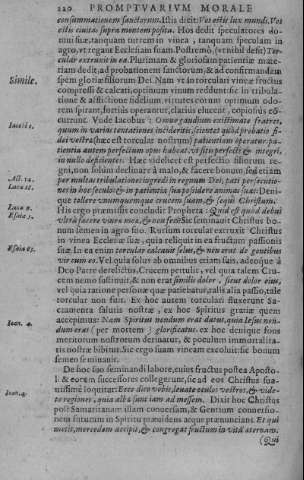 220 PROMPTVARIVM MORALE
consummationem sanctorum. Istis dicit: Vos estis lux mundi. Vos
estis ciuitas supra montem posita. Hos dedit speculatores do-
mui suæ, tanquam turrem in vinea; tanquam speculam in
agro, vt regant Ecclesiam suam. Postremò, (vt nihil desit) Tor-
cular extruxit in ea. Plurimam & gloriosam patientiæ mate-
riam dedit, ad probationem sanctorum, & ad confirmandam
Simile.
spem gloriæ filiorum Dei. Nam vt in torculari vineæ fructus
compressi & calcati, optimum vinum reddunt: sic in tribula-
tione & afflictione fidelium, virtutes eorum optimum odo-
rem spirant, fortius operantur, clarius elucent, copiosius cō-
currunt. Vnde Iacobus: Omne gaudium existimate fratres,
Iacobi 1.
quum in varias tentationes incideritis, scientes quòd probatio fi-
dei vestræ (hæc est torcular nostrum) patientiam operatur: pa-
tientia autem perfectum opus habeat: vt sitis perfecti & integri,
in nullo deficientes. Hæc videlicet est perfectio filiorum re-
gni, non solùm declinare à malo, & facere bonum: sed etiam
Act. 14.
per multas tribulationes ingredi in regnum Dei, pati persecutio-
Luca 21.
nes in hoc seculo: & in patientia sua possidere animas suas: Deni-
que tollere vnumquemque crucem suam, & sequi Christum.
Luca 9.
His ergo præmissis concludit Propheta: Quid est quod debui
Esaia 5.
vltrà facere vineæ meæ, & non feci? Sic seminauit Christus bo-
num semen in agro suo. Rursum torcular extruxit Christus
in vinea Ecclesiæ suæ, quia reliquit in ea fructum passionis
Esaia 63.
suæ. In ea enim torcular calcauit solus, & non erat de gentibus
vir cum eo. Vel quia solus ab omnibus etiam suis, adeoque à
Deo Patre derelictus, Crucem pertulit, vel quia talem Cru-
cem nemo sustinuit, & non erat similis dolor, sicut dolor eius,
vel quia ratione personæ quæ patiebatur, nullis alia passio, tale
torcular non fuit. Ex hoc autem torculari fluxerunt Sa-
cramenta salutis nostræ, ex hoc Spiritus gratiæ quem
Ioan. 7.
accepimus: Nam Spiritus nondum erat datus, quia Iesus non-
dum erat (per mortem) glorificatus. ex hoc denique fons
meritorum nostrorum deriuatur, & poculum immortalita-
tis nostræ bibitur. Sic ergo suam vineam excoluit: sic bonum
semen seminauit.
De hoc suo seminandi labore, cuius fructus postea Aposto-
li & eorum successores collegerunt, sic ad eos Christus sua-
uissimè loquitur: Ecce dico vobis, leuate oculos vestros, & vide-
Ioan. 4.
te regiones, quia albæ sunt iam ad messem. Dixit hoc Christus
post Samaritanam illam conuersam, & Gentium conuersio-
nem futuram in Spiritu præuidens atque prænuncians. Et qui
metit, mercedem accipit, & congregat fructum in vitā æternam.
(Qui